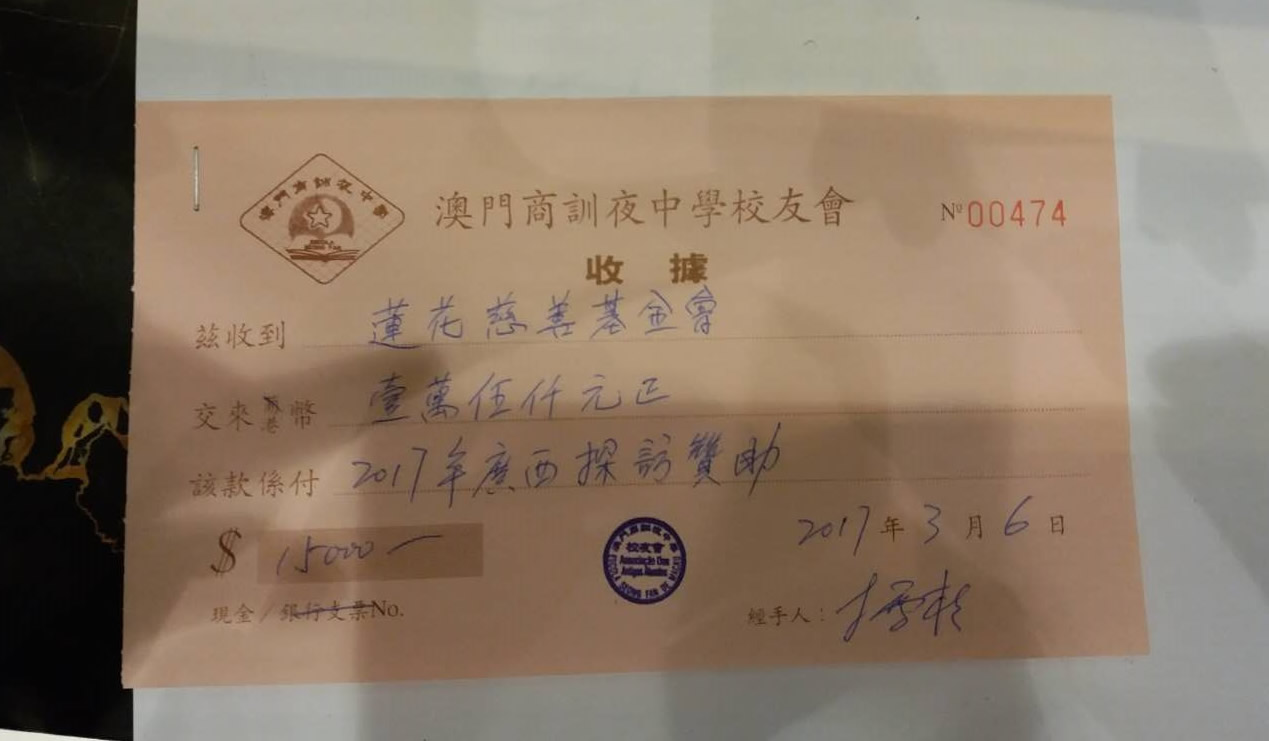 澳門商訓夜中學
澳門商訓夜中學校友會
Nº 00474
收據
茲收到 蓮花慈善基金會
交來 港幣 壹萬伍仟元正
該款係付 2017年廣西探訪贊助
$ 15000 —
2017年3月6日
校友會
Associação Dos
Antigos Alunos
現金 / 銀行支票No.
經手人: